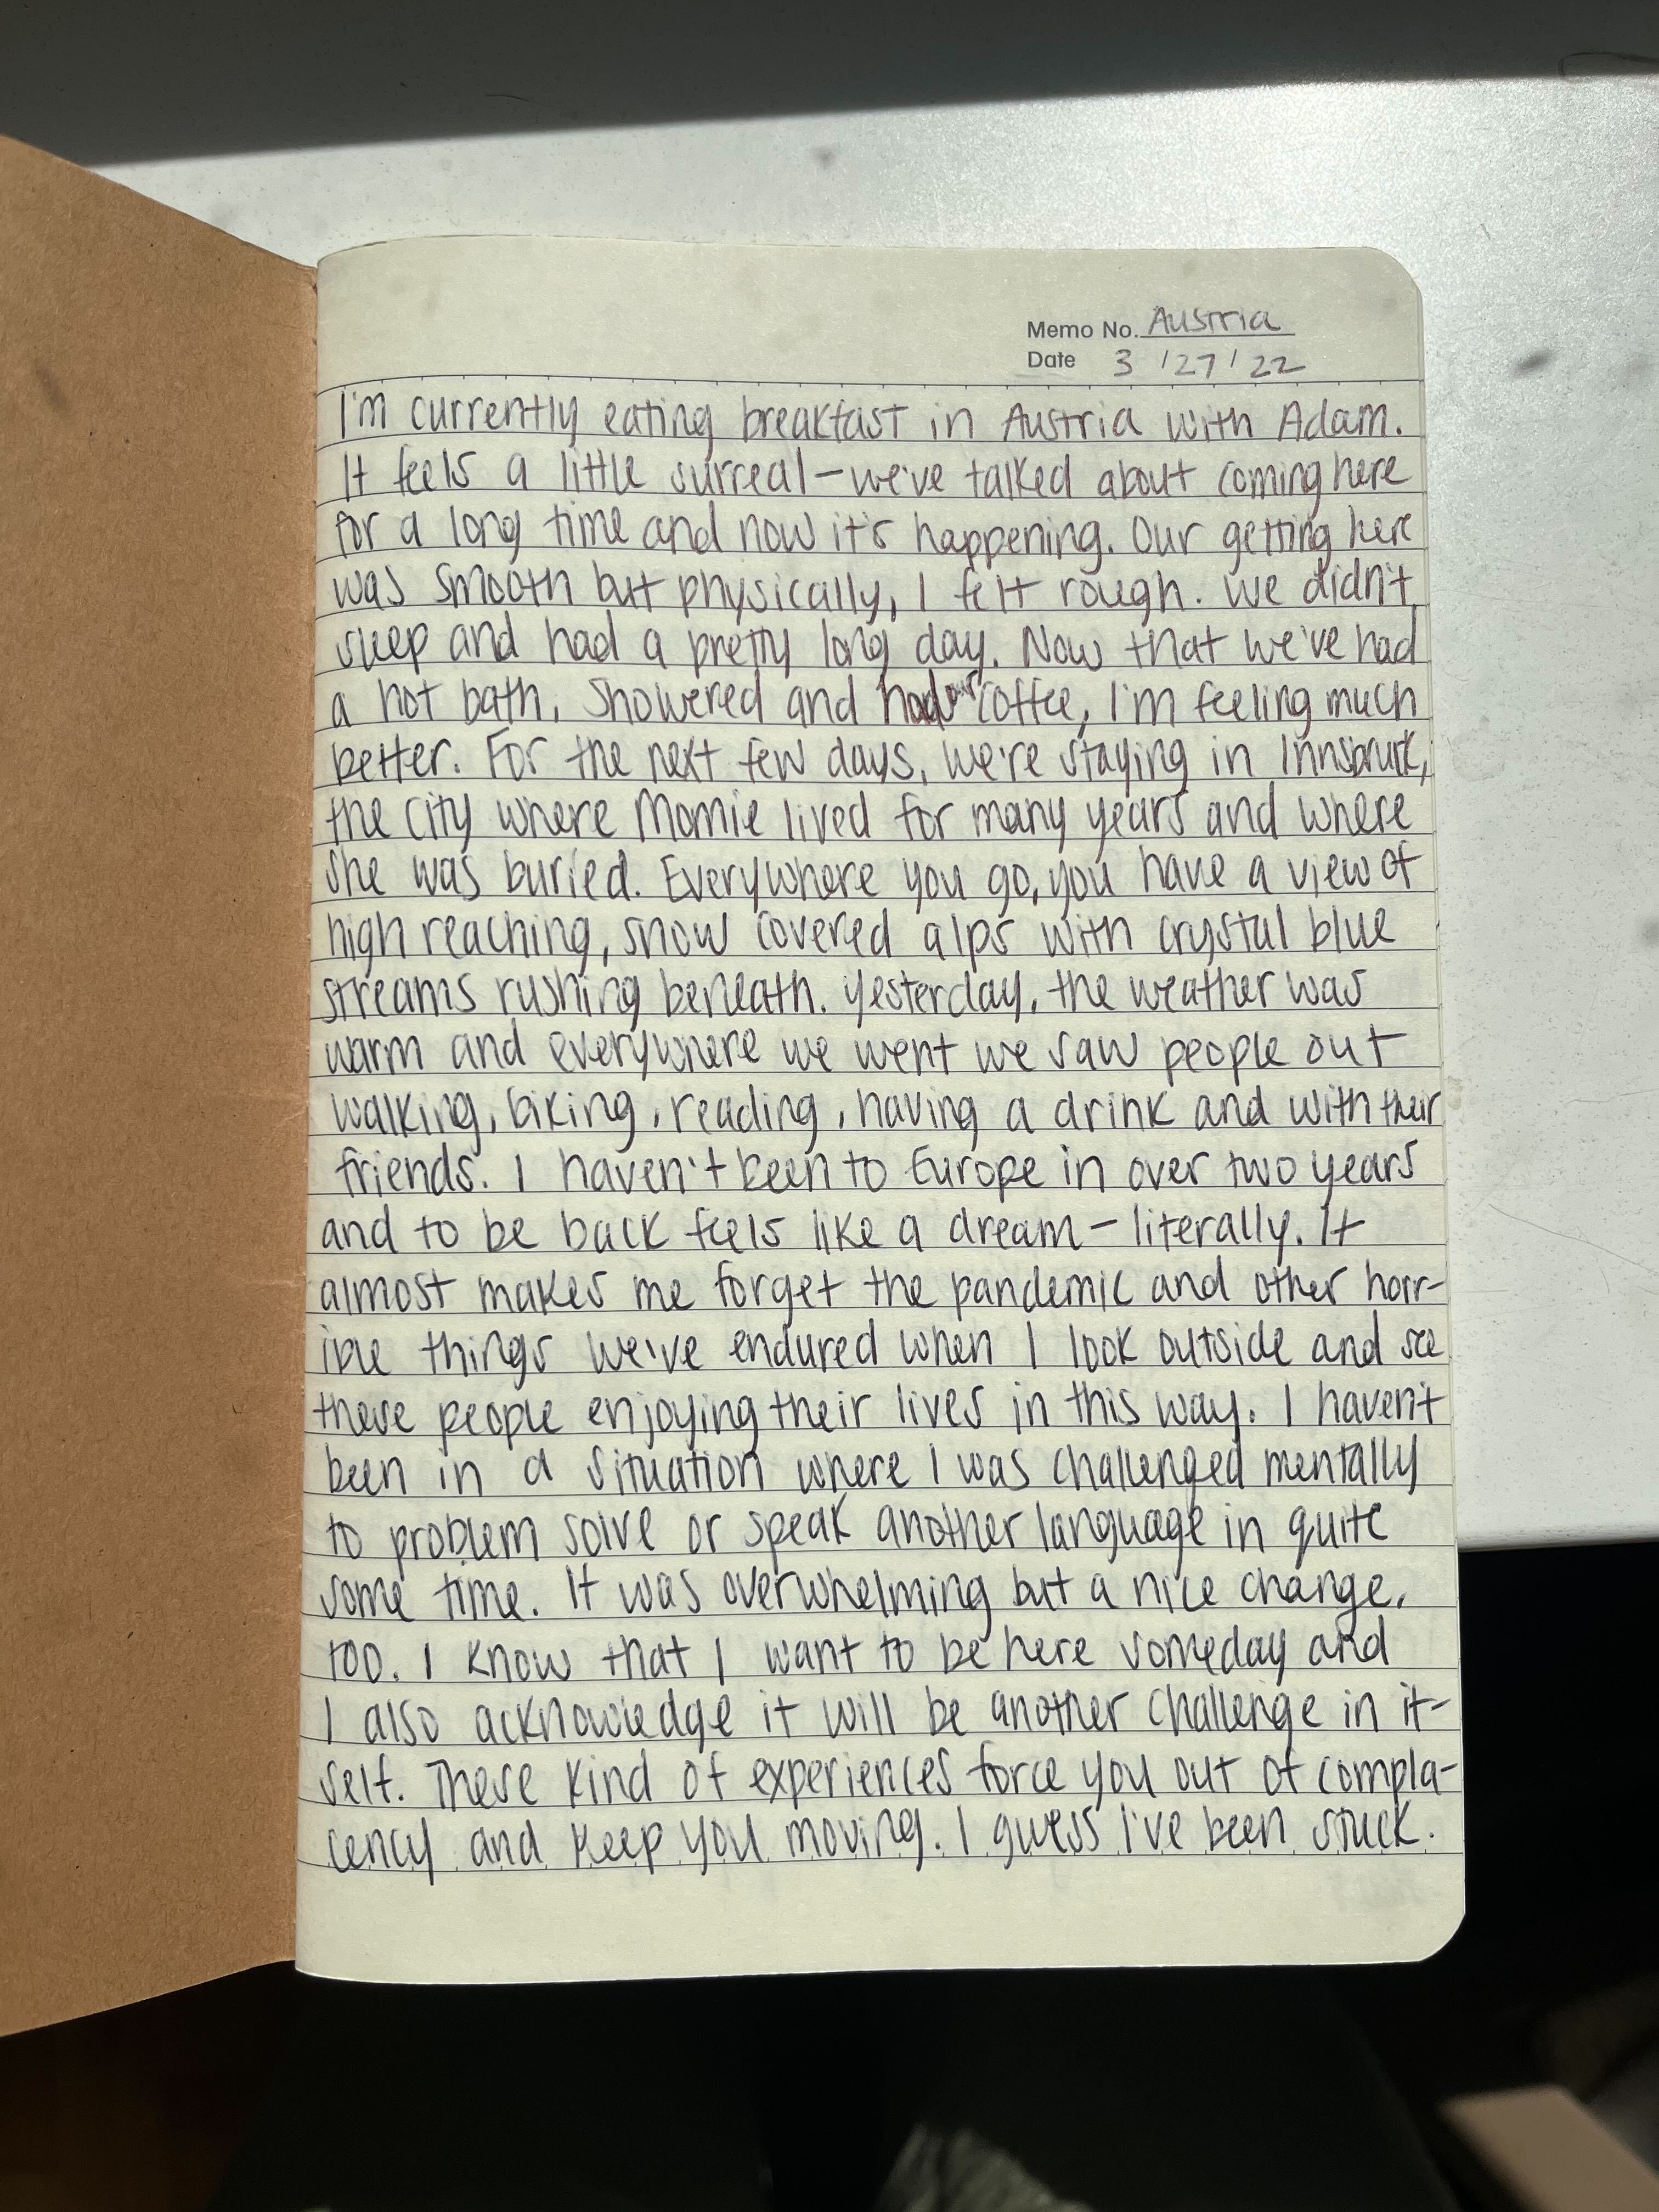 Memo No. Austria
Date 3 / 27 / 22
I'm currently eating breakfast in Austria with Adam.
It feels a little surreal—we've talked about coming here
for a long time and now it's happening. Our getting here
was smooth but physically, I felt rough. We didn't
sleep and had a pretty long day. Now that we've had
a hot bath, showered and had our coffee, I'm feeling much
better. For the next few days, we're staying in Innsbruck,
the city where Momie lived for many years and where
she was buried. Everywhere you go, you have a view of
high reaching, snow covered alps with crystal blue
streams rushing beneath. Yesterday, the weather was
warm and everywhere we went we saw people out
walking, biking, reading, having a drink and with their
friends. I haven't been to Europe in over two years
and to be back feels like a dream — literally. It
almost makes me forget the pandemic and other horr-
ible things we've endured when I look outside and see
these people enjoying their lives in this way. I haven't
been in a situation where I was challenged mentally
to problem solve or speak another language in quite
some time. It was overwhelming but a nice change,
too. I know that I want to be here someday and
I also acknowledge it will be another challenge in it-
self. These kind of experiences force you out of compla-
cency and keep you moving. I guess I've been stuck.